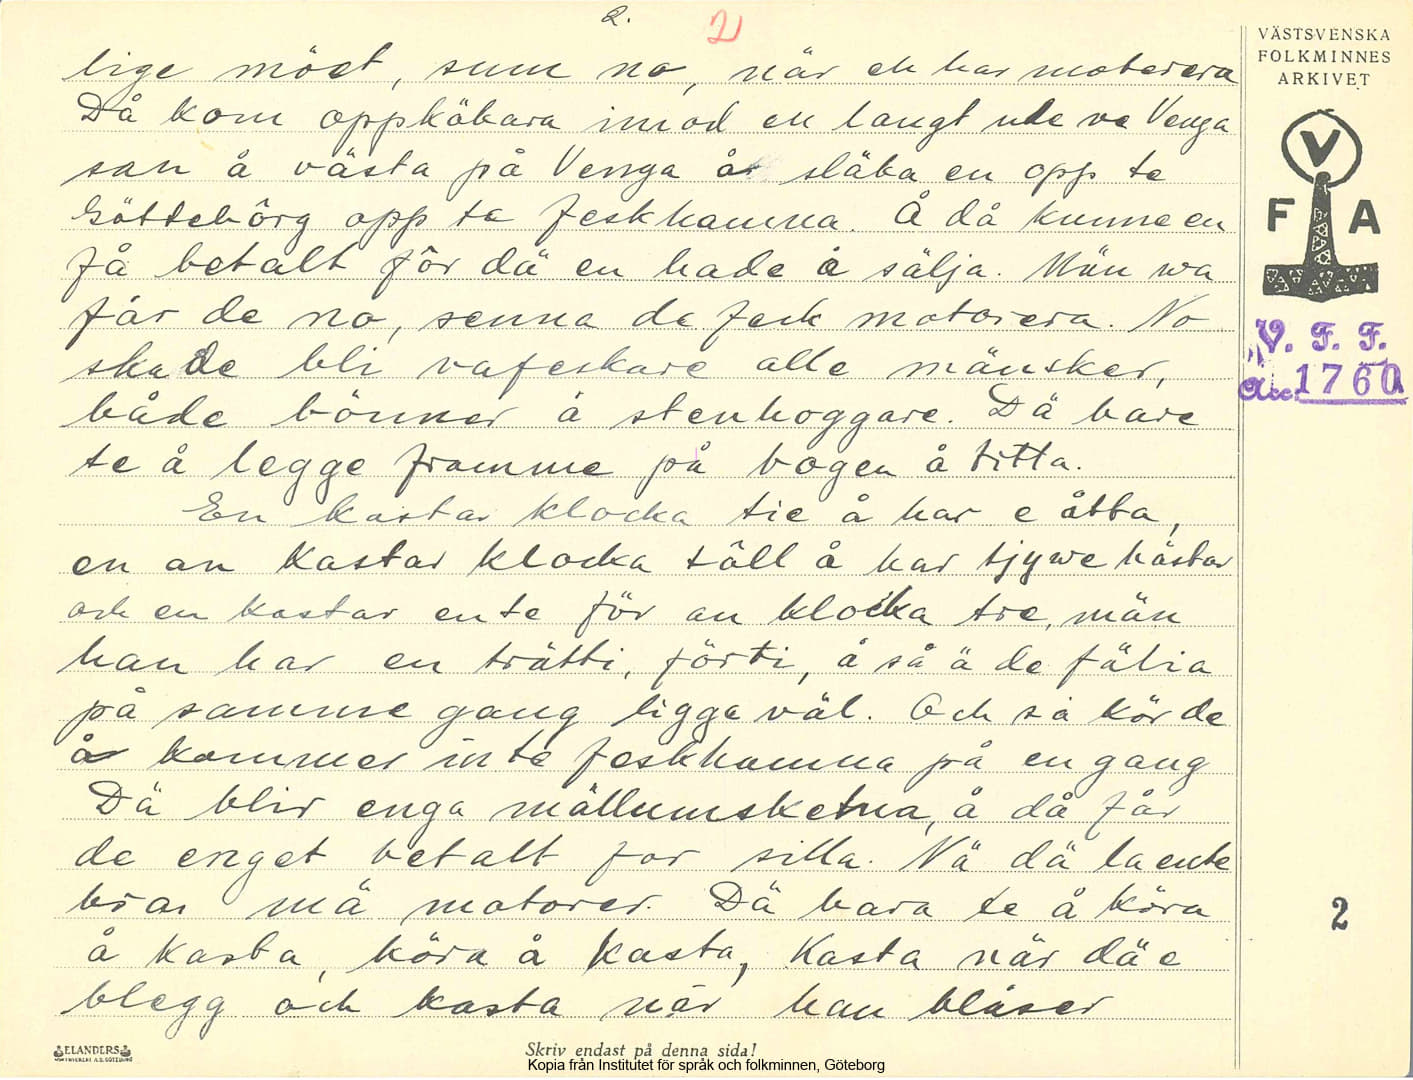 2.
2
VÄSTSVENSKA
FOLKMINNES
ARKIVET
V
F A
V. F. F.
Acc. 1760
lige möet, sum no, när eh har motorera
Då kom oppköbara imod en langt ute ve Venga
san å västa på Venga å släba en opp te
Göttebôrg opp te feskhamna. Å då kunne en
få betalt fôr dä en hade å sälja. Män wa
får de no, senna de feck motorera. No
ska de bli vafeskare alle mänsker,
både bönner å stenhoggare. Dä bare
te å legge framme på bogen å titta.
En kastar klocka tie å har e åtta,
en an kastar klocka täll å har tjywe kåstar
och en kastar ente för an klocka tre, män
han har en trätti, förti, å så ä de fälia
på samme gang ligge väl. Och så kör de
å kommer in te feskhamna på en gang
Dä blir enga mällumsketna, å då får
de enget betalt for silla. Nä dä la ente
bra mä motorer. Dä bara te å köra
å kasta, köra å kasta, kasta när dä e
blegg och kasta når han blåser
2
ELANDERS
Skriv endast på denna sida!
Kopia från Institutet för språk och folkminnen, Göteborg